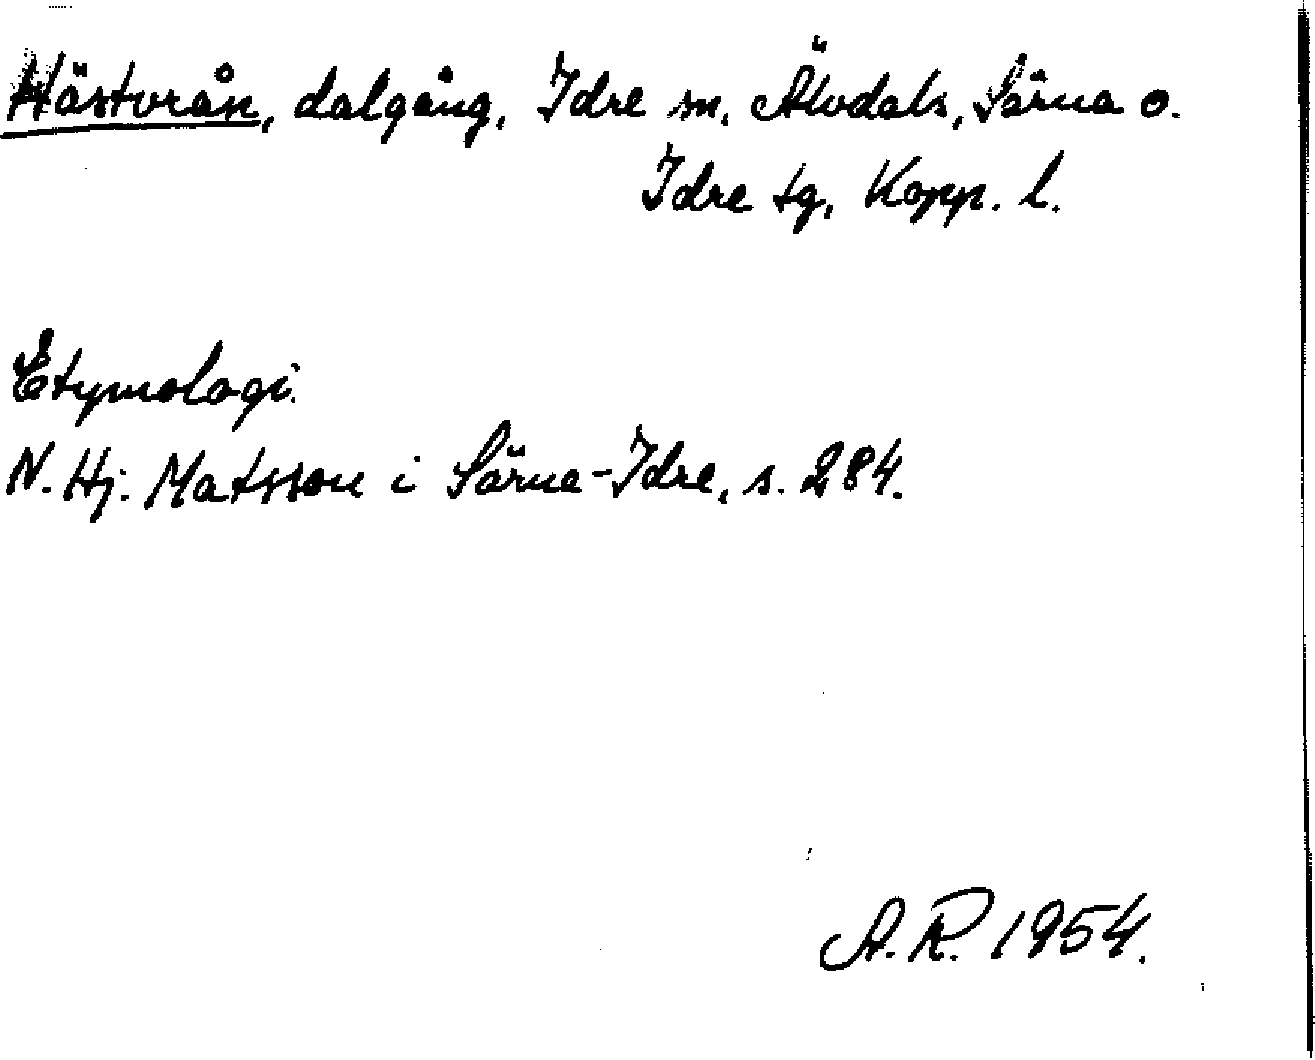 Hästvrån, dalgång, Idre sn, Älvdals, Särna o.
Idre tg, Kopp. l.
Etymologi.
N. Hj. Matsson i Särna-Idre, s. 284.
A. R. 1954.